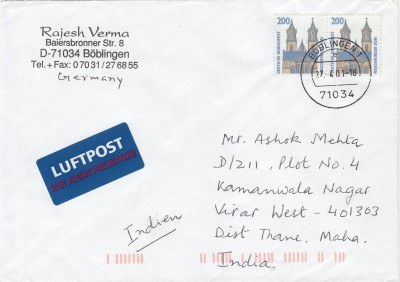 Rajesh Verma
Baiersbronner Str. 8
D-71034 Böblingen
Tel.+Fax: 07031/276855
Germany
200
200
DEUTSCHE BUNDESPOST
BÖBLINGEN 1
27.-4.01-18
71034
LUFTPOST
Mr. Ashok Mehta
D/211, Plot No. 4
Kamanwala Nagar
Virar West - 401303
Dist Thane. Maha.
India
Indien